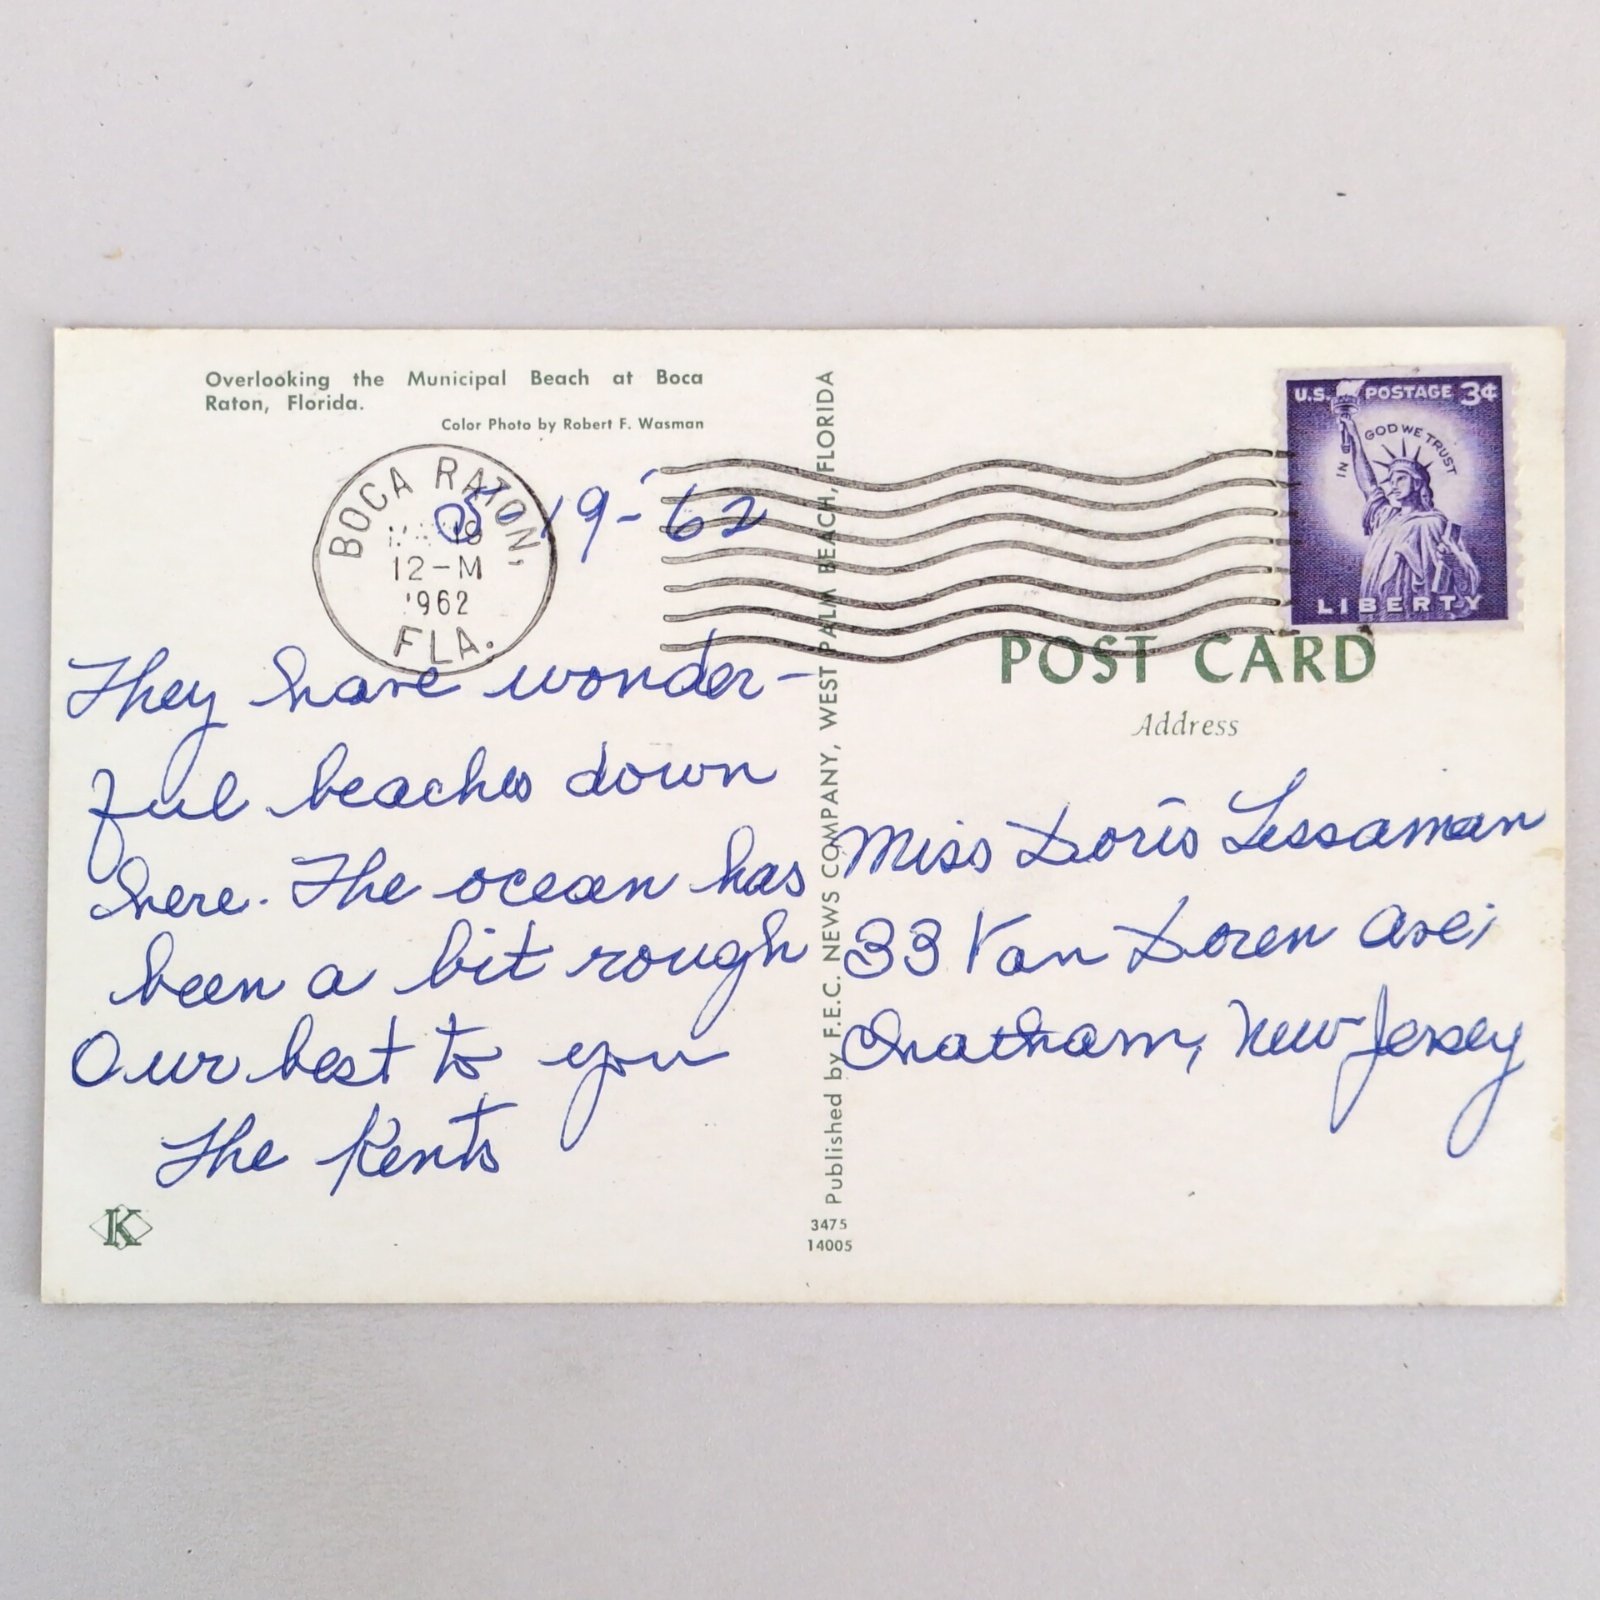 Overlooking the Municipal Beach at Boca
Raton, Florida.
Color Photo by Robert F. Wasman
BOCA RATON,
19
12-M
1962
FLA.
5-19-'62
They have wonder-
ful beaches down
here. The ocean has
been a bit rough
Our best to you
The Kents
K
Published by F.E.C. NEWS COMPANY, WEST PALM BEACH, FLORIDA
3475
14005
U.S. POSTAGE 3¢
IN GOD WE TRUST
LIBERTY
POST CARD
Address
Miss Doris Lessaman
33 Van Doren Ave;
Chatham, New Jersey